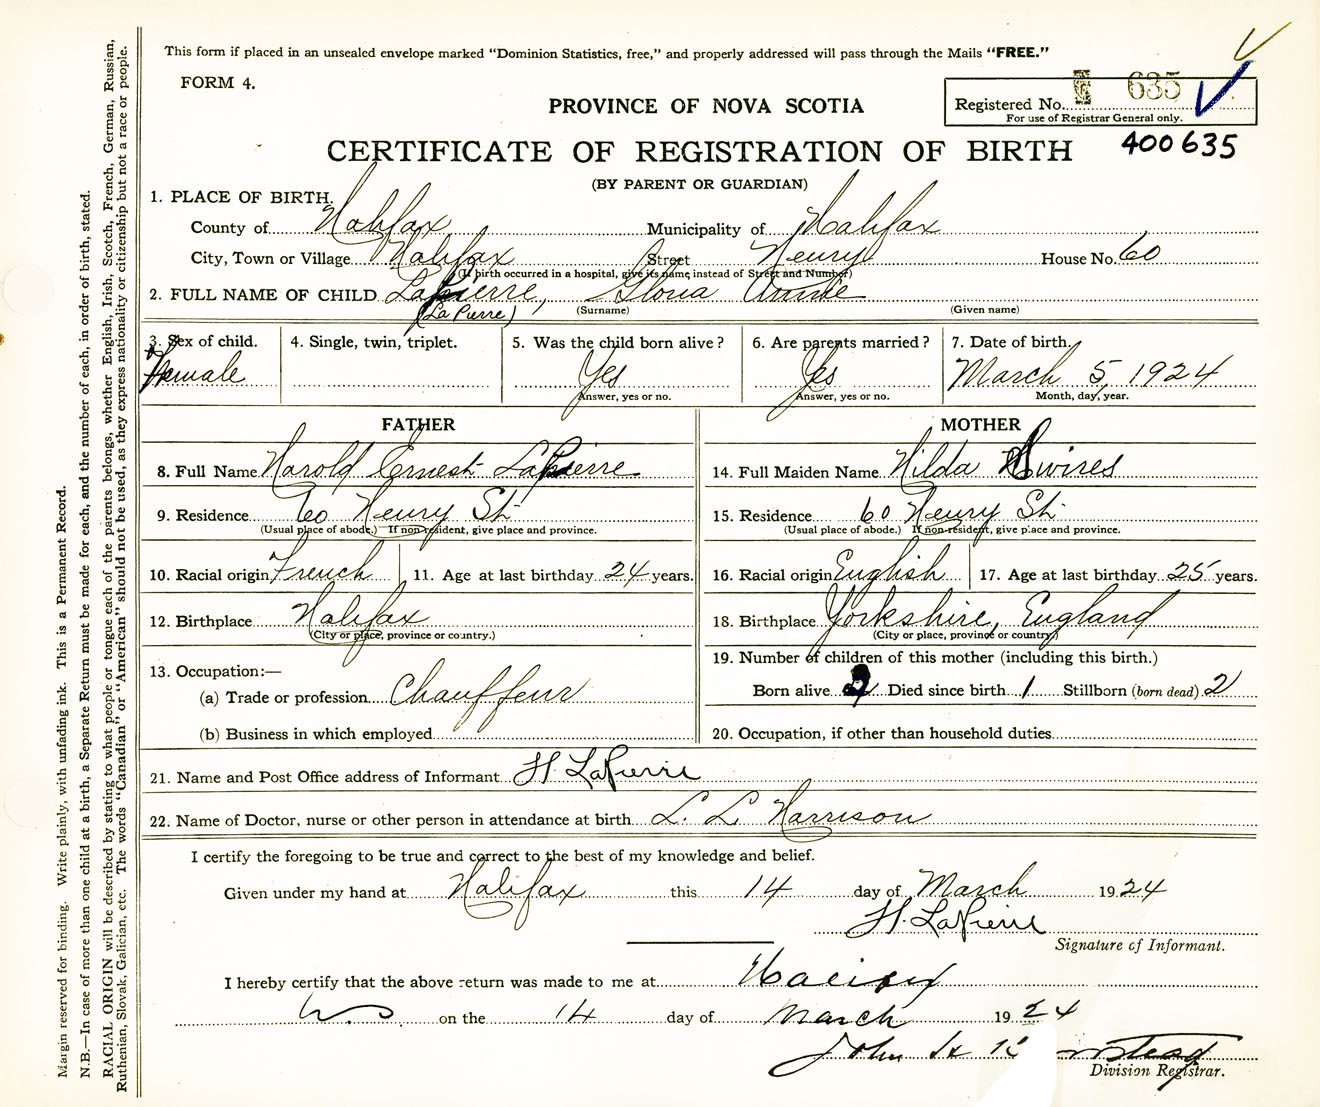 This form if placed in an unsealed envelope marked "Dominion Statistics, free," and properly addressed will pass through the Mails "FREE."
FORM 4.
Registered No. 635
For use of Registrar General only.
PROVINCE OF NOVA SCOTIA
400635
CERTIFICATE OF REGISTRATION OF BIRTH
(BY PARENT OR GUARDIAN)
1. PLACE OF BIRTH.
County of Halifax Municipality of Halifax
City, Town or Village Halifax Street Henry House No. 60
(If birth occurred in a hospital, give its name instead of Street and Number)
2. FULL NAME OF CHILD LaPierre, Gloria Annie
(La Pierre) (Surname) (Given name)
3. Sex of child. 4. Single, twin, triplet. 5. Was the child born alive? 6. Are parents married? 7. Date of birth.
Female Yes Yes March 5, 1924
Answer, yes or no. Answer, yes or no. Month, day, year.
FATHER MOTHER
8. Full Name Harold Ernest LaPierre 14. Full Maiden Name Hilda Swires
9. Residence 60 Henry St. 15. Residence 60 Henry St.
(Usual place of abode.) If non-resident, give place and province. (Usual place of abode.) If non-resident, give place and province.
10. Racial origin French 11. Age at last birthday 24 years. 16. Racial origin English 17. Age at last birthday 25 years.
12. Birthplace Halifax 18. Birthplace Yorkshire, England
(City or place, province or country.) (City or place, province or country)
13. Occupation:— 19. Number of children of this mother (including this birth.)
(a) Trade or profession Chauffeur Born alive Died since birth 1 Stillborn (born dead) 2
(b) Business in which employed 20. Occupation, if other than household duties
21. Name and Post Office address of Informant H. LaPierre
22. Name of Doctor, nurse or other person in attendance at birth L. L. Harrison
I certify the foregoing to be true and correct to the best of my knowledge and belief.
Given under my hand at Halifax this 14 day of March 1924
H. LaPierre
Signature of Informant.
I hereby certify that the above return was made to me at Halifax
N.S. on the 14 day of March 1924
John H
Division Registrar.
Margin reserved for binding. Write plainly, with unfading ink. This is a Permanent Record.
N.B.—In case of more than one child at a birth, a Separate Return must be made for each, and the number of each, in order of birth, stated.
RACIAL ORIGIN will be described by stating to what people or tongue each of the parents belongs, whether English, Irish, Scotch, French, German, Russian,
Ruthenian, Slovak, Galician, etc. The words "Canadian" or "American" should not be used, as they express nationality or citizenship but not a race or people.